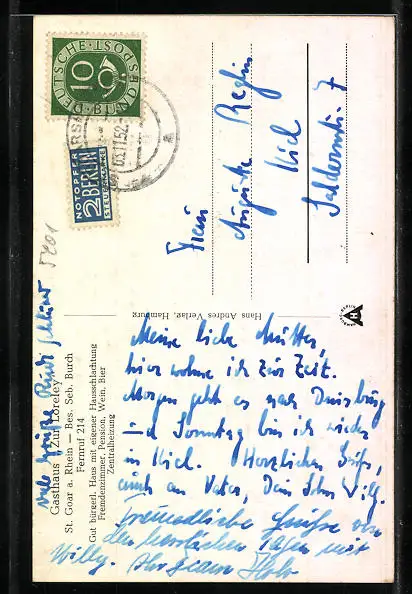 DEUTSCHE BUNDESPOST
10
NOTOPFER
2 BERLIN
STEUERMARKE
03.11.52
5401
Frau
Auguste Reglin
Kiel
Hans Andres Verlag, Hamburg
Gasthaus „Zur Loreley“
St. Goar a. Rhein — Bes. Seb. Burch
Fernruf 214
Gut bürgerl. Haus mit eigener Hausschlachtung
Fremdenzimmer, Pension, Wein, Bier
Zentralheizung
Meine liebe Mutter,
hier wohne ich zur Zeit.
Morgen geht es nach Duisburg
und Sonntag bin ich wieder
in Kiel. Herzlichen Gruß,
auch an Vater, Dein Sohn Willy.
Freundliche Grüße von
den herrlichen Tagen mit
Willy. Ihr
viele Grüße